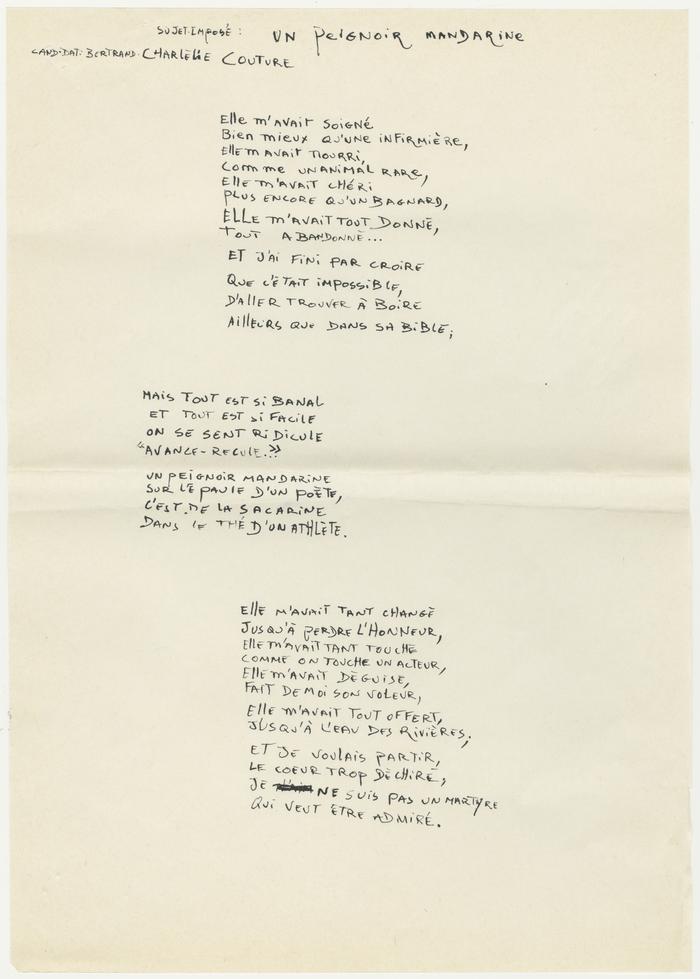 SUJET. IMPOSÉ : UN PEIGNOIR MANDARINE
CANDIDAT: BERTRAND. CHARLÉLIE COUTURE
Elle m'AVAIT SOIGNÉ
Bien mieux QU'UNE INFIRMIÈRE,
Elle m'AVAIT NOURRI,
Comme UN ANIMAL RARE,
Elle m'AVAIT CHÉRI
PLUS ENCORE QU'UN BAGNARD,
ELLE m'AVAIT TOUT DONNÉ,
TOUT ABANDONNÉ...
ET J'AI FINI PAR CROIRE
QUE C'ÉTAIT IMPOSSIBLE,
D'ALLER TROUVER À BOIRE
AILLEURS QUE DANS SA BIBLE;
MAIS TOUT EST SI BANAL
ET TOUT EST SI FACILE
ON SE SENT RIDICULE
"AVANCE-RECULE.."
UN PEIGNOIR MANDARINE
SUR L'ÉPAULE D'UN POÈTE,
C'EST DE LA SACARINE
DANS LE THÉ D'UN ATHLÈTE.
Elle M'AVAIT TANT CHANGÉ
JUSQU'À PERDRE L'HONNEUR,
Elle M'AVAIT TANT TOUCHÉ
COMME ON TOUCHE UN ACTEUR,
Elle M'AVAIT DÉGUISÉ,
FAIT DE MOI SON VOLEUR,
Elle M'AVAIT TOUT OFFERT,
JUSQU'À L'EAU DES RIVIÈRES;
ET JE VOULAIS PARTIR,
LE COEUR TROP DÉCHIRÉ,
JE NE SUIS PAS UN MARTYRE
QUI VEUT ÊTRE ADMIRÉ.